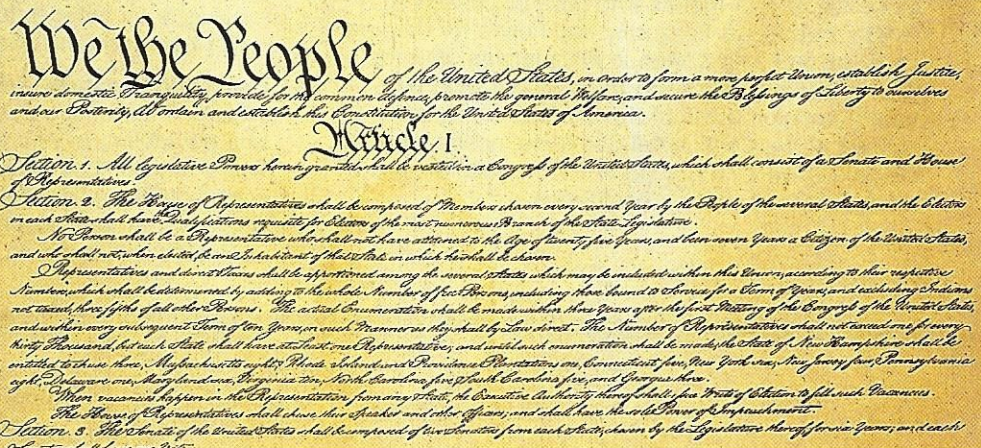 We the People of the United States, in order to form a more perfect Union, establish Justice,
insure domestic Tranquility, provide for the common defence, promote the general Welfare, and secure the Blessings of Liberty to ourselves
and our Posterity, do ordain and establish this Constitution for the United States of America.
Article. I.
Section. 1. All legislative Powers herein granted shall be vested in a Congress of the United States, which shall consist of a Senate and House
of Representatives.
Section. 2. The House of Representatives shall be composed of Members chosen every second Year by the People of the several States, and the Electors
in each State shall have Qualifications requisite for Electors of the most numerous Branch of the State Legislature.
No Person shall be a Representative who shall not have attained to the Age of twenty five Years, and been seven Years a Citizen of the United States,
and who shall not, when elected, be an Inhabitant of that State in which he shall be chosen.
Representatives and direct Taxes shall be apportioned among the several States which may be included within this Union, according to their respective
Numbers, which shall be determined by adding to the whole Number of free Persons, including those bound to Service for a Term of Years, and excluding Indians
not taxed, three fifths of all other Persons. The actual Enumeration shall be made within three Years after the first Meeting of the Congress of the United States,
and within every subsequent Term of ten Years, in such Manner as they shall by Law direct. The Number of Representatives shall not exceed one for every
thirty Thousand, but each State shall have at Least one Representative; and until such enumeration shall be made, the State of New Hampshire shall be
entitled to chuse three, Massachusetts eight, Rhode Island and Providence Plantations one, Connecticut five, New York six, New Jersey four, Pennsylvania
eight, Delaware one, Maryland six, Virginia ten, North Carolina five, South Carolina five, and Georgia three.
When vacancies happen in the Representation from any State, the Executive Authority thereof shall issue Writs of Election to fill such Vacancies.
The House of Representatives shall chuse their Speaker and other Officers; and shall have the sole Power of Impeachment.
Section. 3. The Senate of the United States shall be composed of two Senators from each State, chosen by the Legislature thereof, for six Years; and each